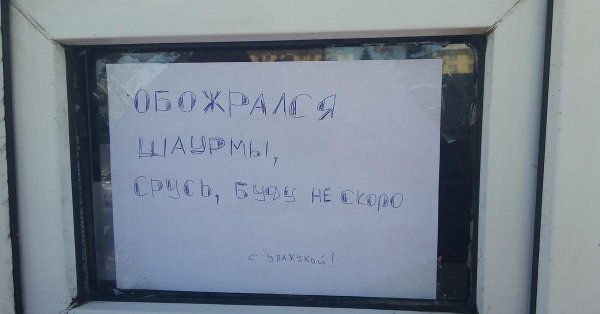 ОБОЖРАЛСЯ
ШАУРМЫ,
СРУСЬ, БУДУ НЕ СКОРО
с увжухой!